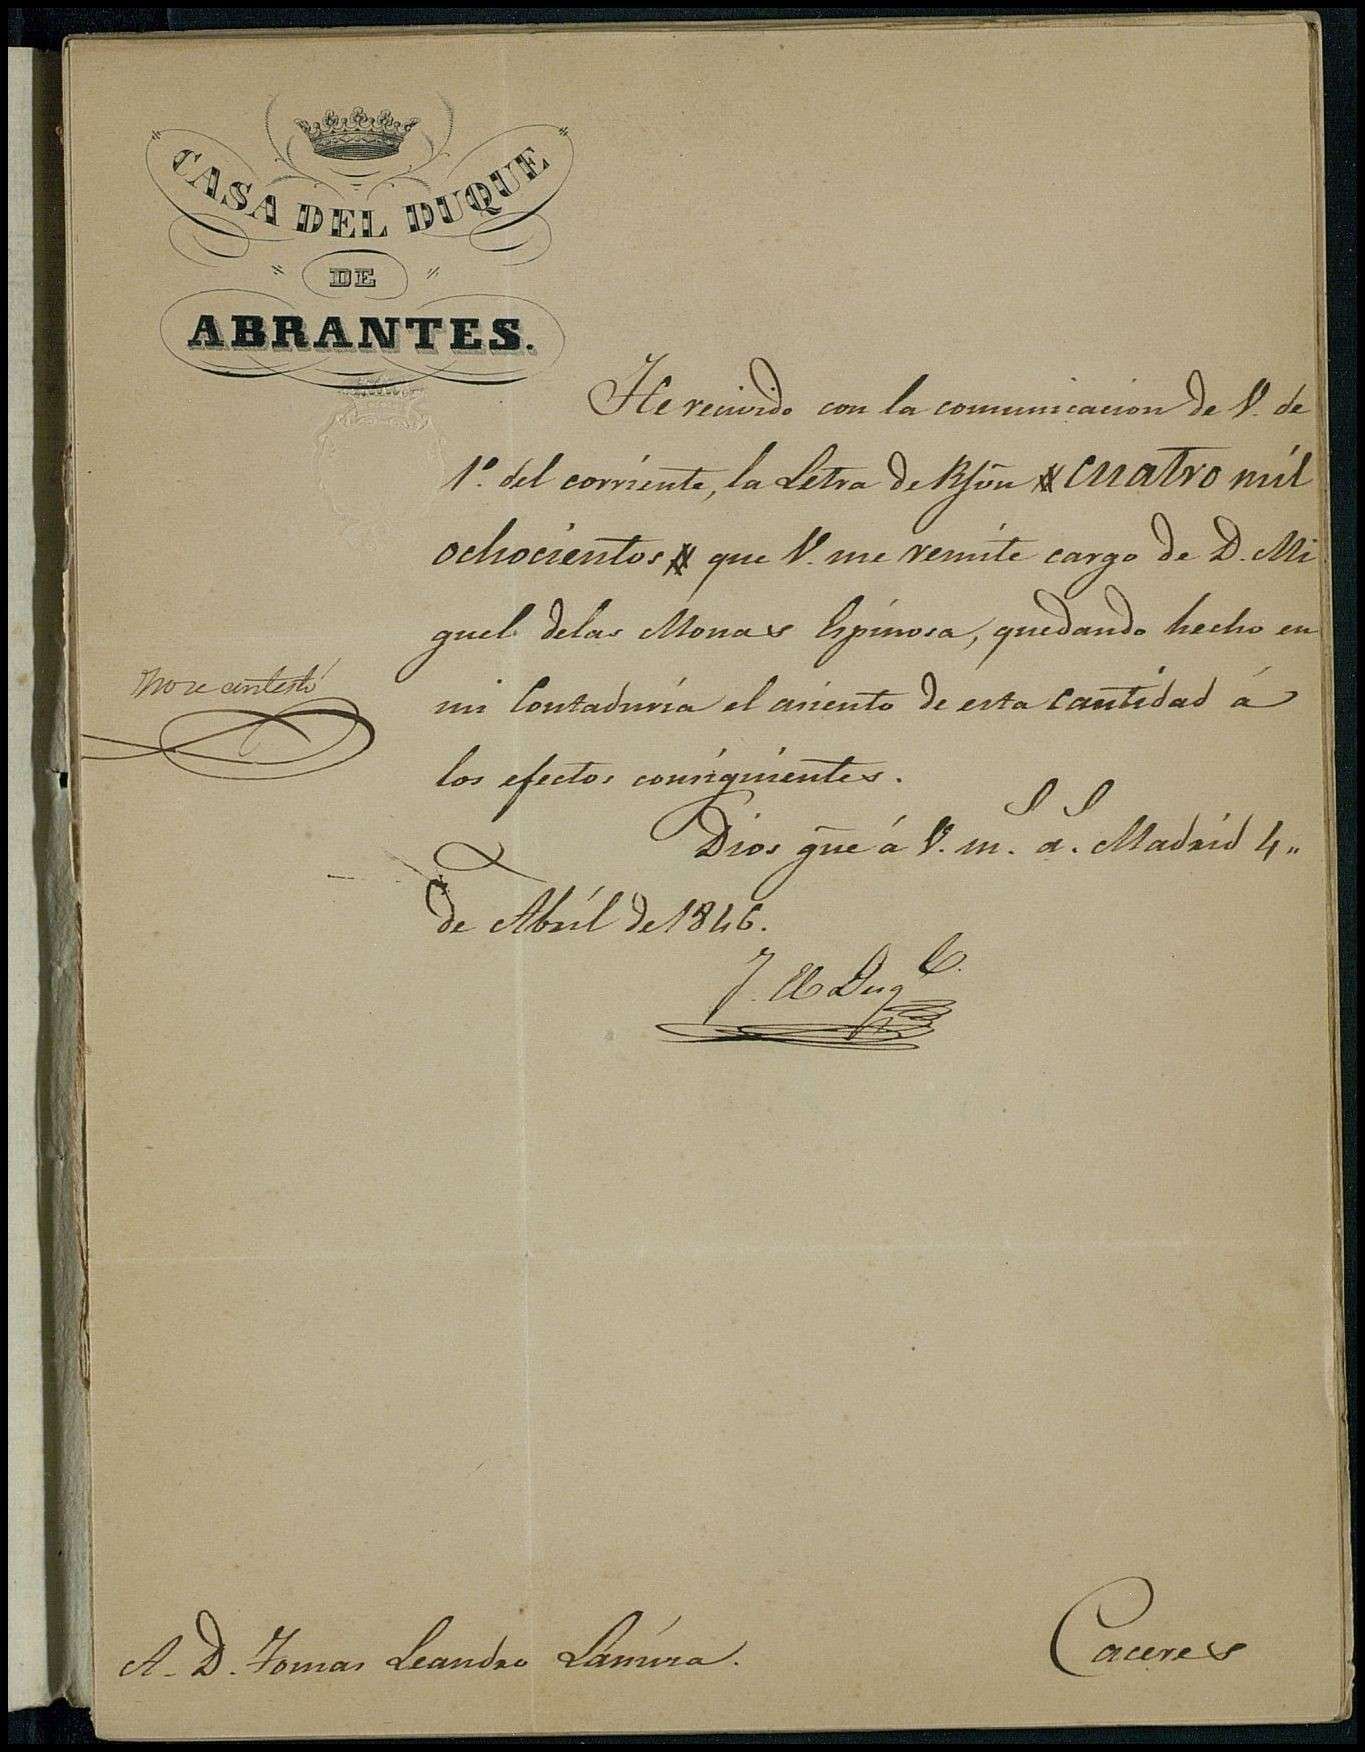 CASA DEL DUQUE
DE
ABRANTES.
He recivido con la comunicacion de V. de
1º. del corriente, la Letra de Rsvn cuatro mil
ochocientos que V. me remite cargo de D. Mi
guel delas Monas Espinosa, quedando hecho en
mi Contaduria el asiento de esta cantidad á
los efectos consiguientes.
No se contestó
Dios gue á V. ms. as. Madrid 4"
de Abríl de 1846.
J. El Duq
A. D. Tomas Leandro
Caceres